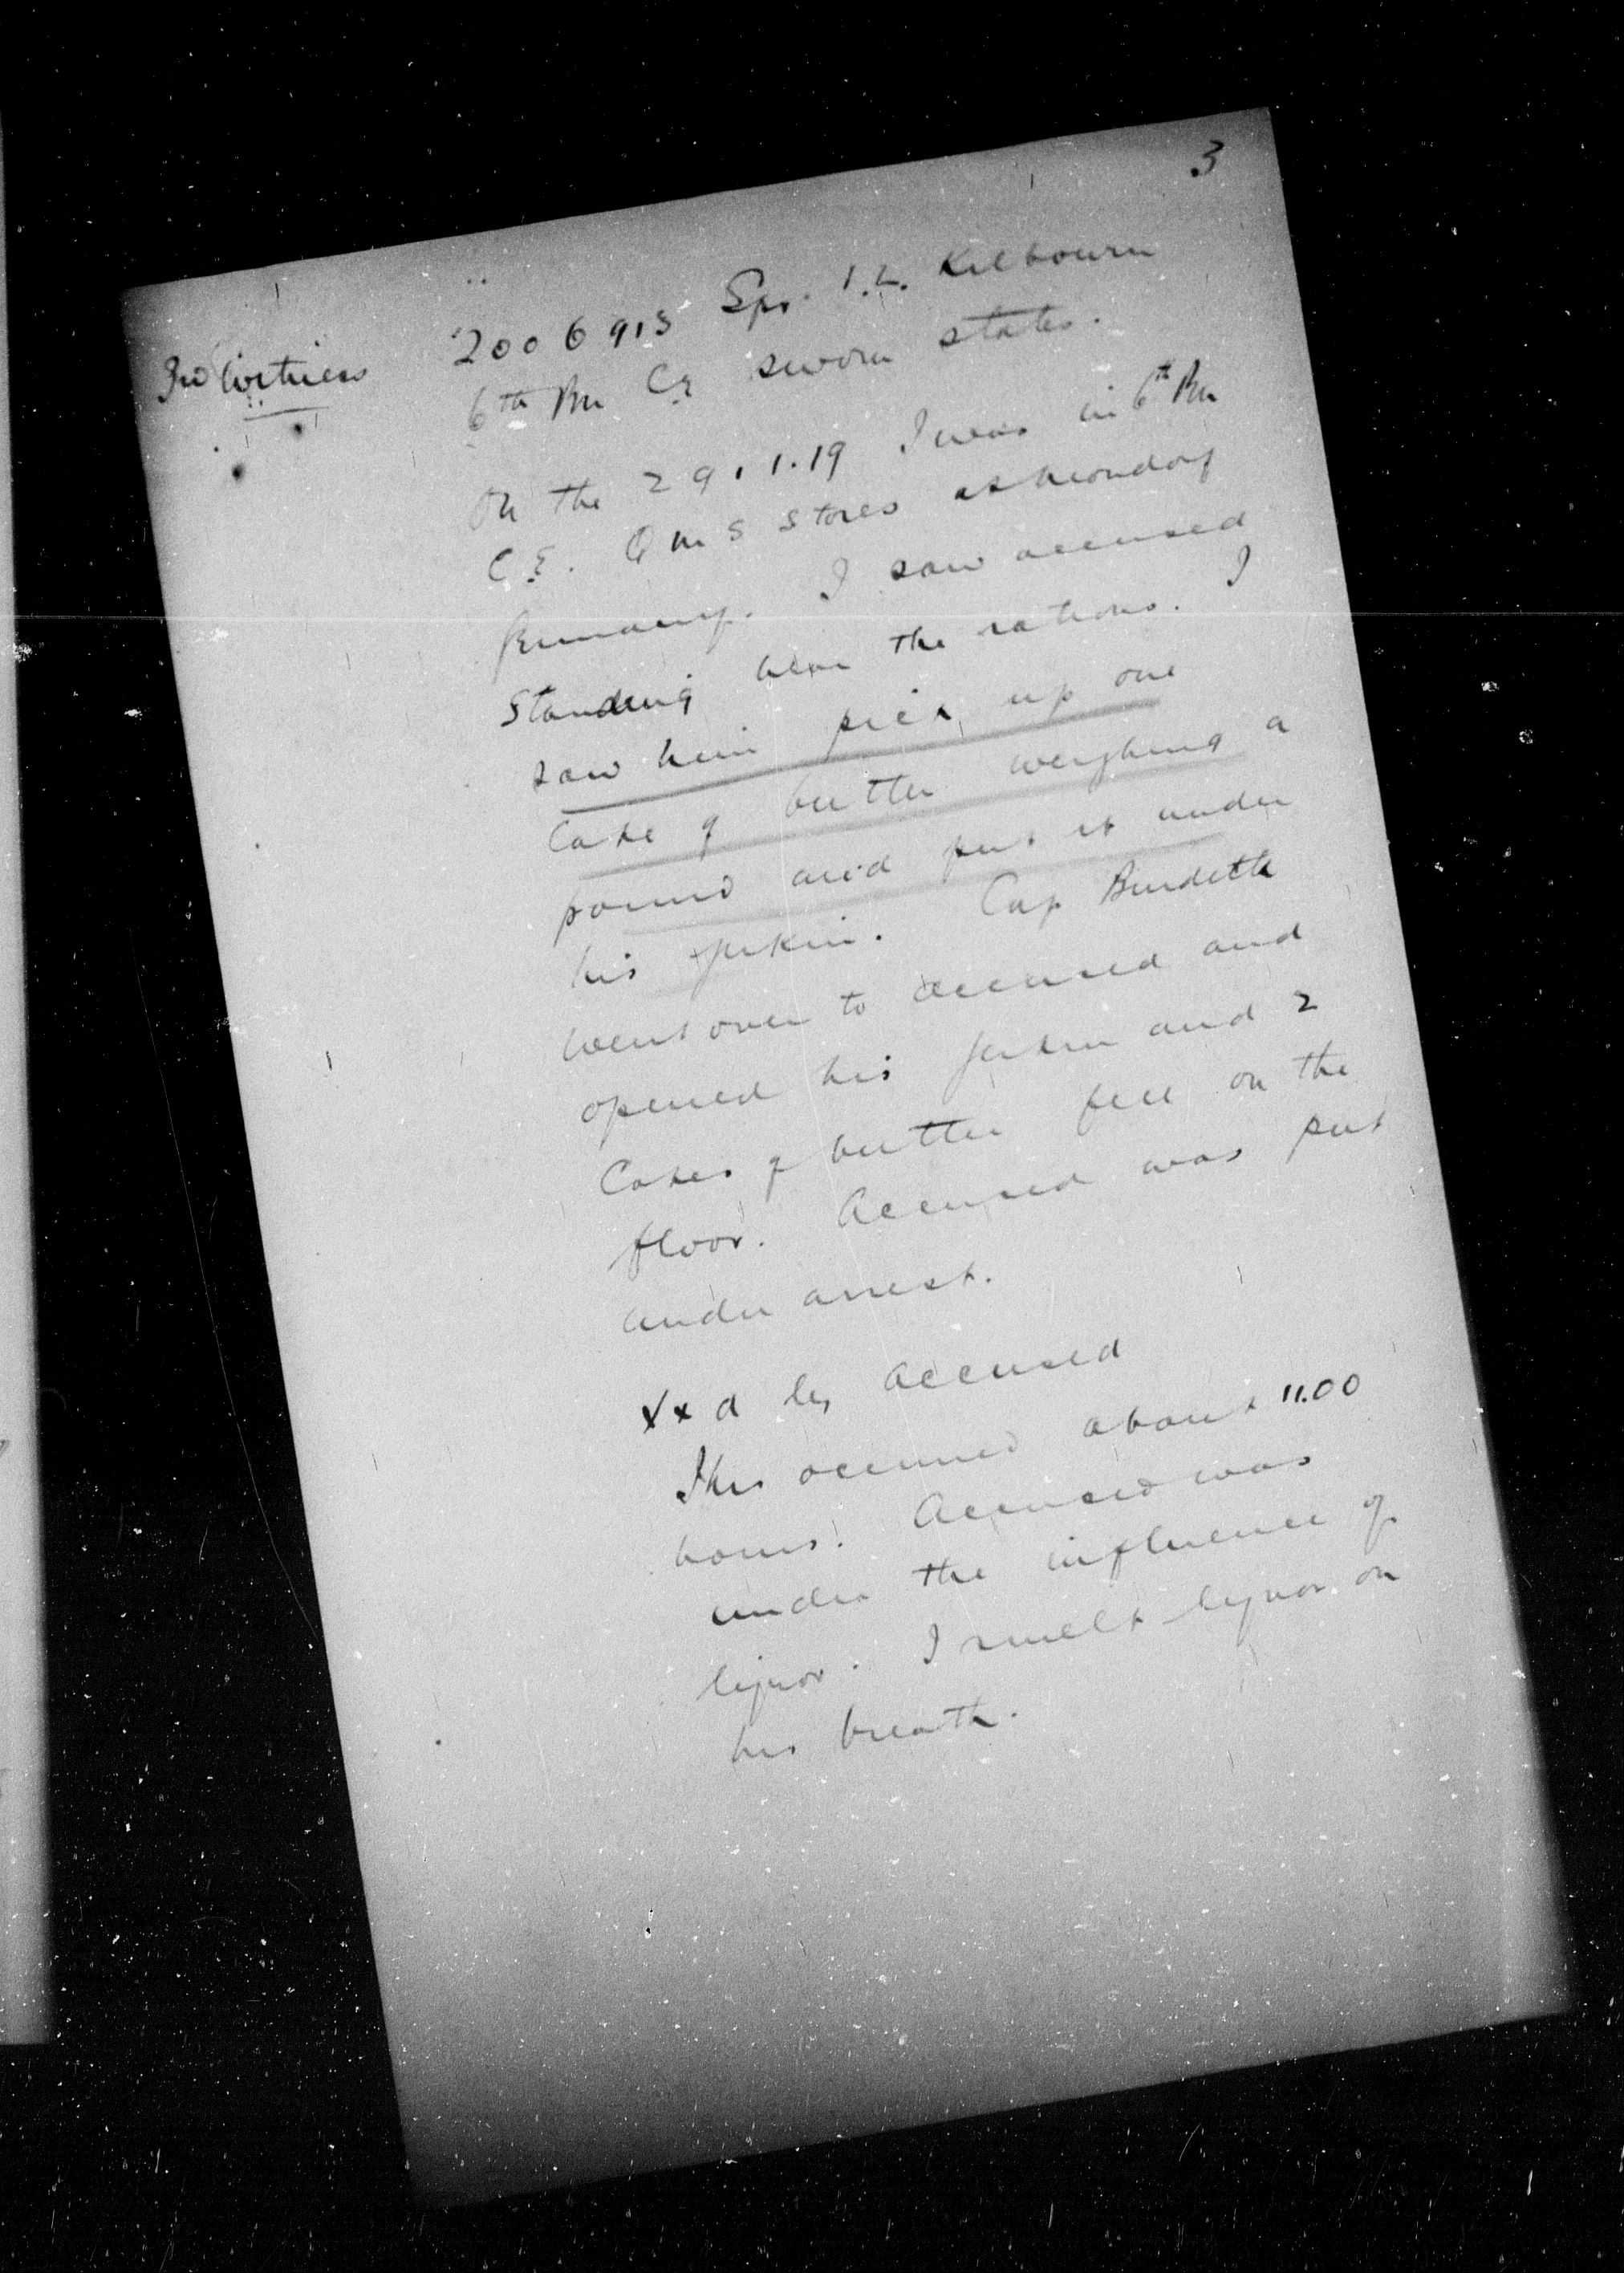 3
3rd Witness
2006913 Spr. I.L. Kilbourn
6th Bn CE sworn states.
On the 29.1.19 I was in 6th Bn
C.E. QMS Stores at
Germany. I saw accused
Standing near the rations. I
saw him pick up one
Cake of butter weighing a
pound and put it under
his jerkin. Cap Burdette
went over to accused and
opened his jerkin and 2
Cakes of butter fell on the
floor. Accused was put
under arrest.
XXd by accused
This occurred about 11.00
hours. Accused was
under the influence of
liquor. I smelt liquor on
his breath.